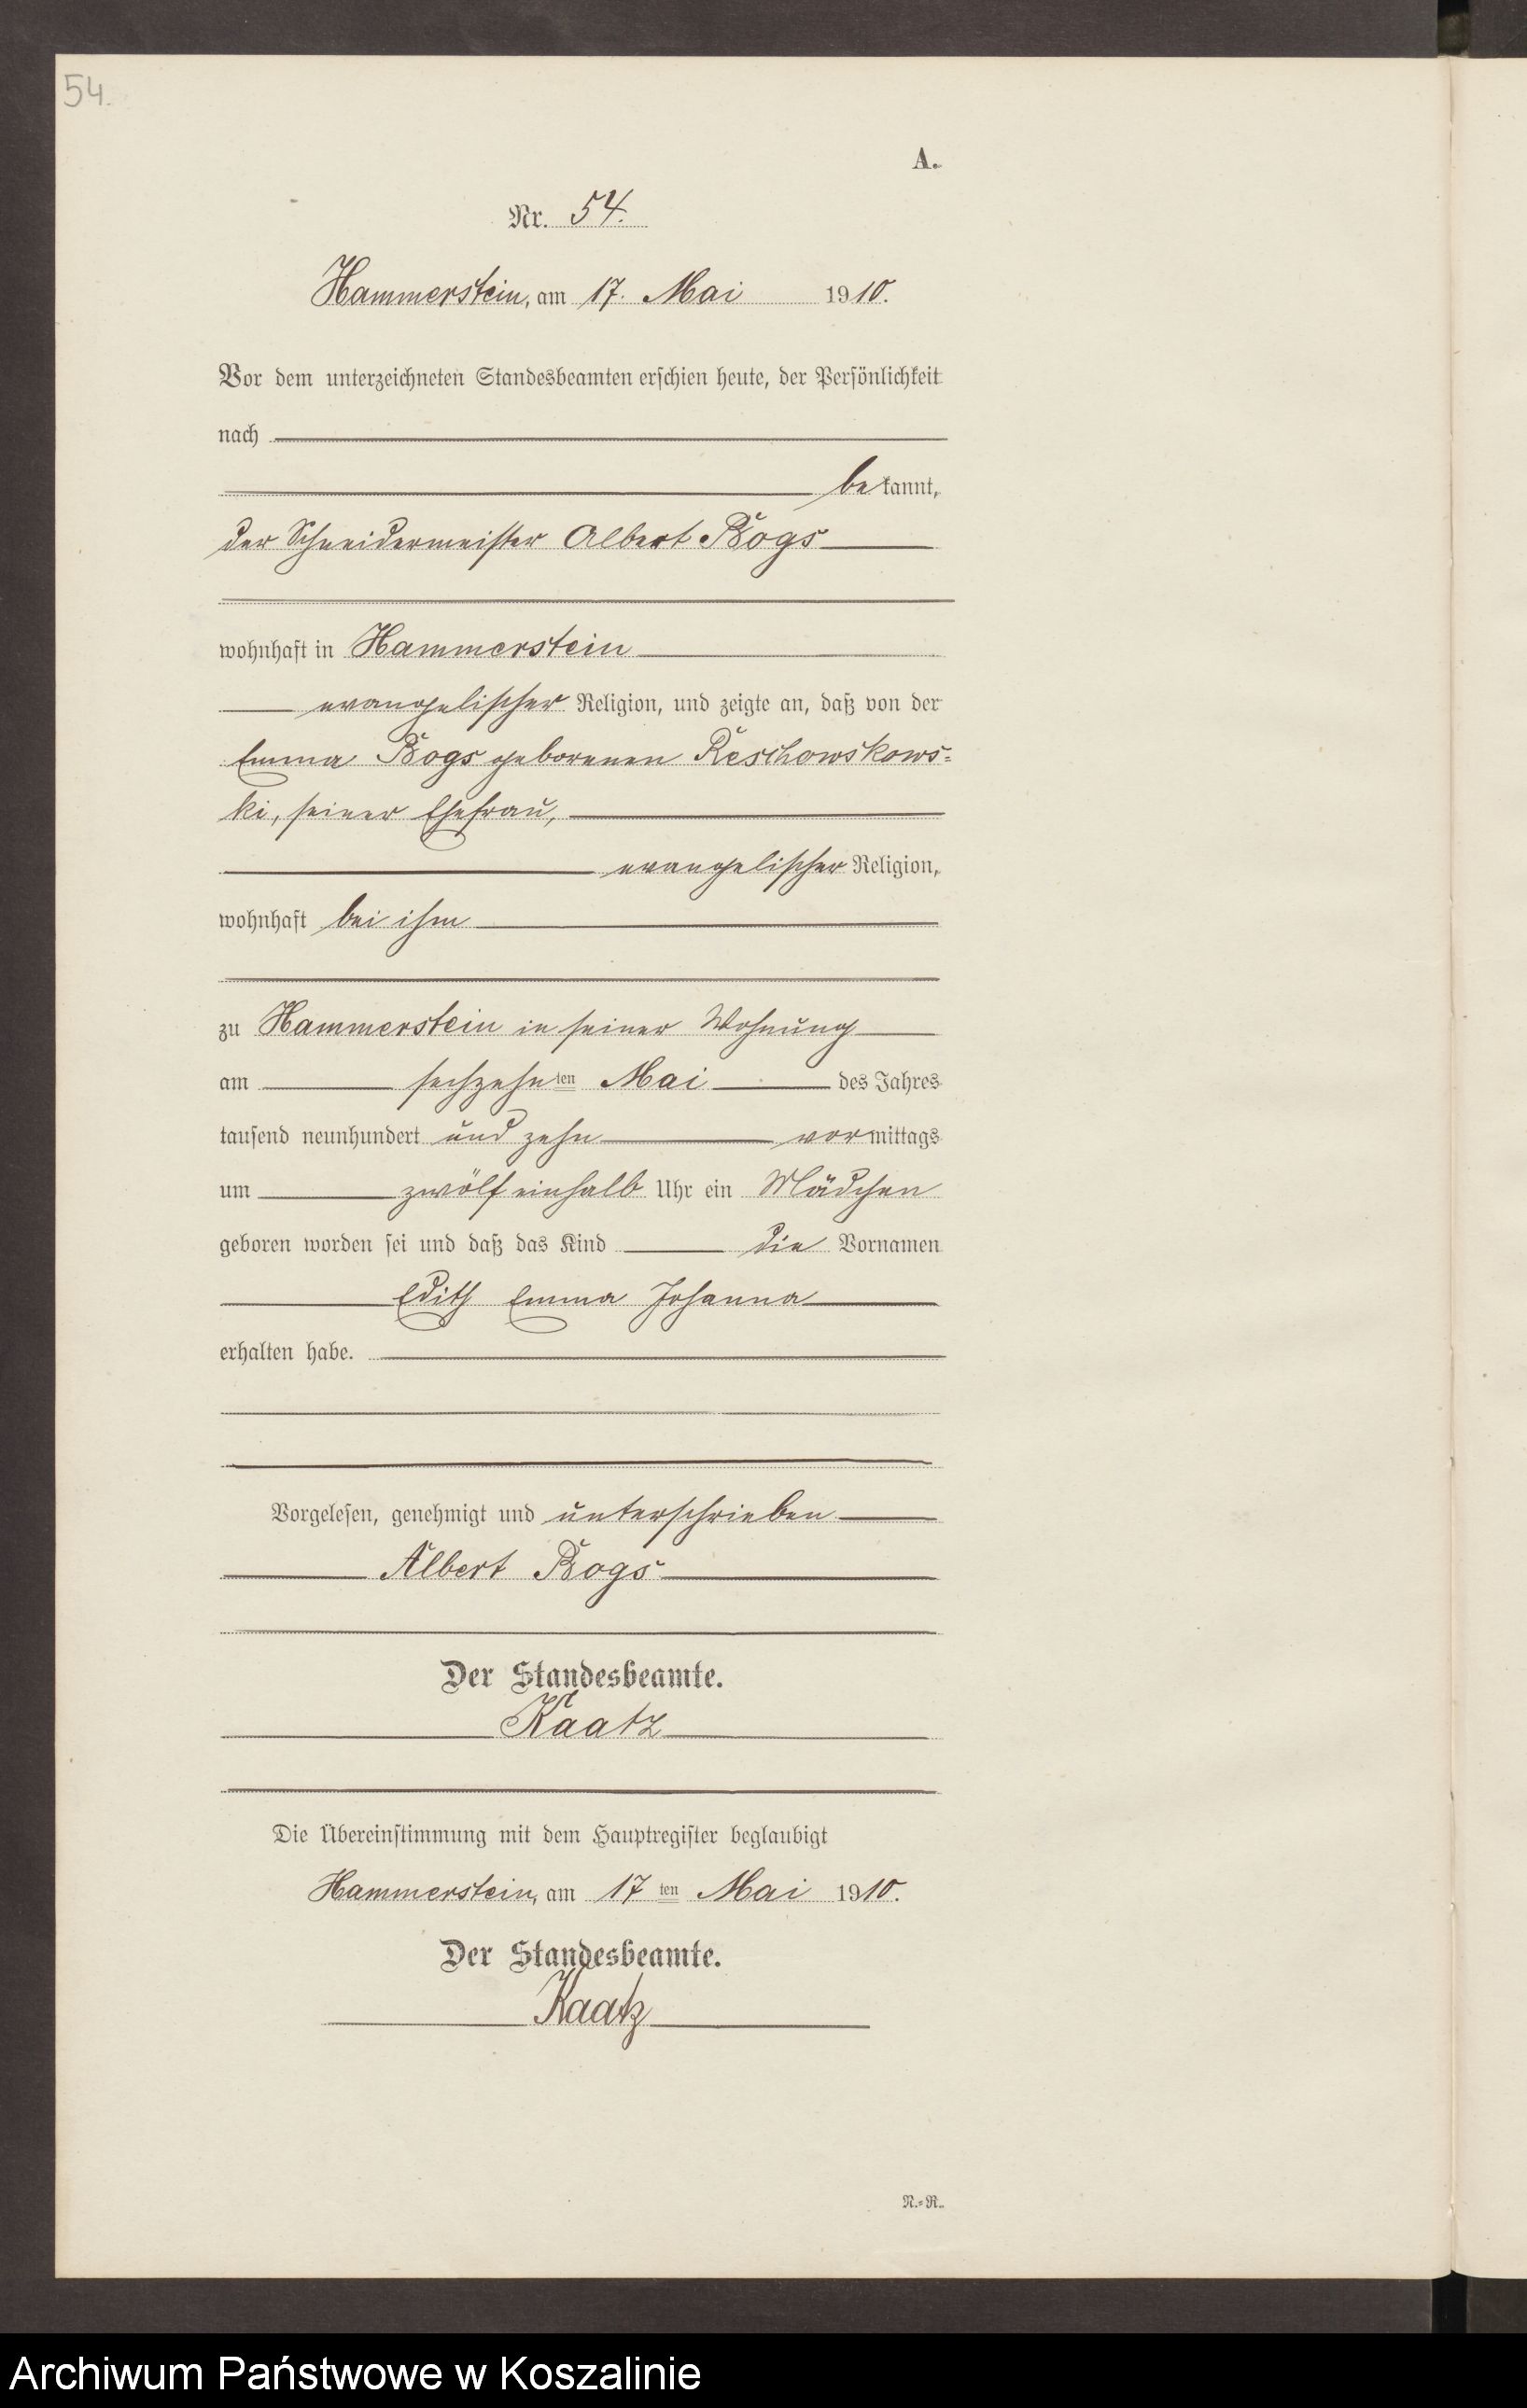 54.
A.
Nr. 54.
Hammerstein, am 17. Mai 1910.
Vor dem unterzeichneten Standesbeamten erschien heute, der Persönlichkeit
nach
bekannt,
der Schneidermeister Albert Bogs
wohnhaft in Hammerstein
evangelischer Religion, und zeigte an, daß von der
Emma Bogs geborenen Reschowskows=
ki, seiner Ehefrau,
evangelischer Religion,
wohnhaft bei ihm
zu Hammerstein in seiner Wohnung
am sechzehnten Mai des Jahres
tausend neunhundert und zehn vormittags
um zwölf einhalb Uhr ein Mädchen
geboren worden sei und daß das Kind die Vornamen
Edith Emma Johanna
erhalten habe.
Vorgelesen, genehmigt und unterschrieben
Albert Bogs
Der Standesbeamte.
Kaatz
Die Übereinstimmung mit dem Hauptregister beglaubigt
Hammerstein, am 17ten Mai 1910.
Der Standesbeamte.
Kaatz
N.=R.
Archiwum Państwowe w Koszalinie